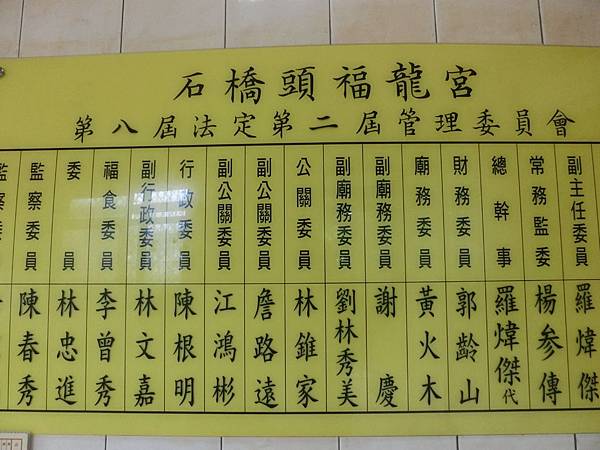 石橋頭福龍宮
第八屆法定第二屆管理委員會
副主任委員 羅煒傑
常務監委 楊參傳
總幹事 羅煒傑代
財務委員 郭齡山
廟務委員 黃火木
副廟務委員 謝慶
副廟務委員 劉林秀美
公關委員 林錐家
副公關委員 詹路遠
副公關委員 江鴻彬
行政委員 陳根明
副行政委員 林文嘉
福食委員 李曾秀
委員 林忠進
監察委員 陳春秀
監察委員